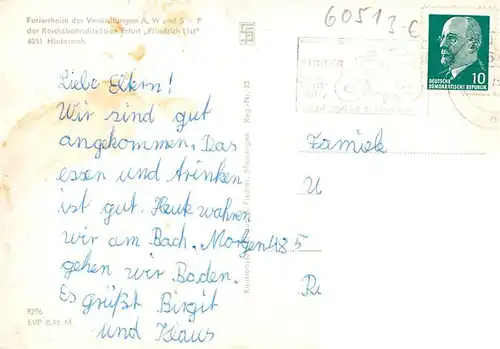 Ferienheim der Verwaltungen A, W und S - F
der Reichsbahndirektion Erfurt „Friedrich List"
6051 Hinternah
60513-C
10
DEUTSCHE
DEMOKRATISCHE REPUBLIK
Liebe Eltern!
Wir sind gut
angekommen. Das
essen und trinken
ist gut. Heute wahren
wir am Bach. Morgen
gehen wir Baden.
Es grüßt Birgit
und Klaus
Zamiek
U
485
Re
Fischer, Meiningen Reg.-Nr. 23
9296
EVP 0,25 M